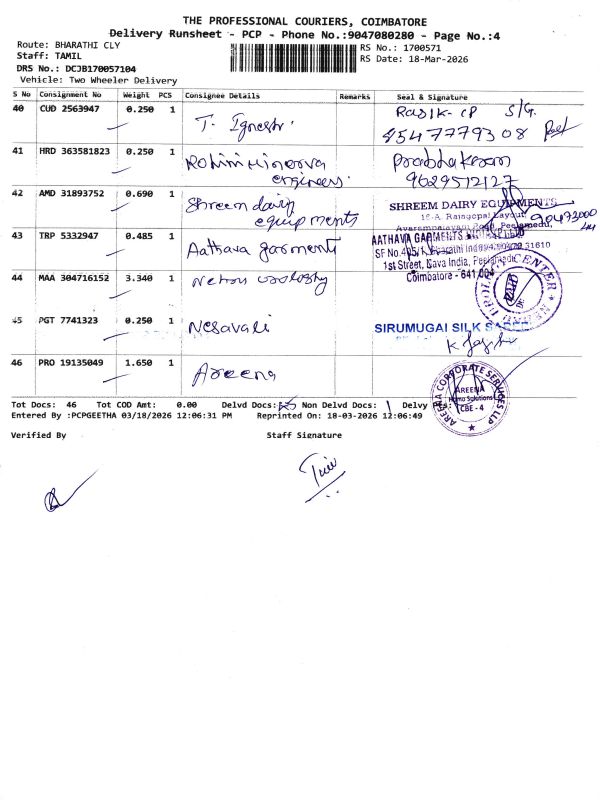 THE PROFESSIONAL COURIERS, COIMBATORE
Delivery Runsheet - PCP - Phone No.:9047080280 - Page No.:4
Route: BHARATHI CLY
Staff: TAMIL
DRS No.: DCJB170057104
Vehicle: Two Wheeler Delivery
RS No.: 1700571
RS Date: 18-Mar-2026
S No Consignment No Weight PCS Consignee Details Remarks Seal & Signature
40 CUD 2563947 0.250 1 T. Rasik-CP S/G.
95477779308
41 HRD 363581823 0.250 1 Rohini Minerva engineers. Prabhakaran
9629512127
42 AMD 31893752 0.690 1 Shreem dairy equipments
SHREEM DAIRY EQUIPMENTS
16-A, Rajagopal Layout,
43 TRP 5332947 0.485 1 Aathava garments
AATHAVA GARMENTS
1st Street, Nava India, Peelamedu
Coimbatore - 641 004
44 MAA 304716152 3.340 1
45 PGT 7741323 0.250 1 Nesavali
SIRUMUGAI SILK
46 PRO 19135049 1.650 1 Areena
AREENA CORPORATE SERVICES LLP
AREENA
Home Solutions
CBE - 4
Tot Docs: 46 Tot COD Amt: 0.00 Delvd Docs: Non Delvd Docs: 1 Delvy
Entered By :PCPGEETHA 03/18/2026 12:06:31 PM Reprinted On: 18-03-2026 12:06:49
Verified By Staff Signature